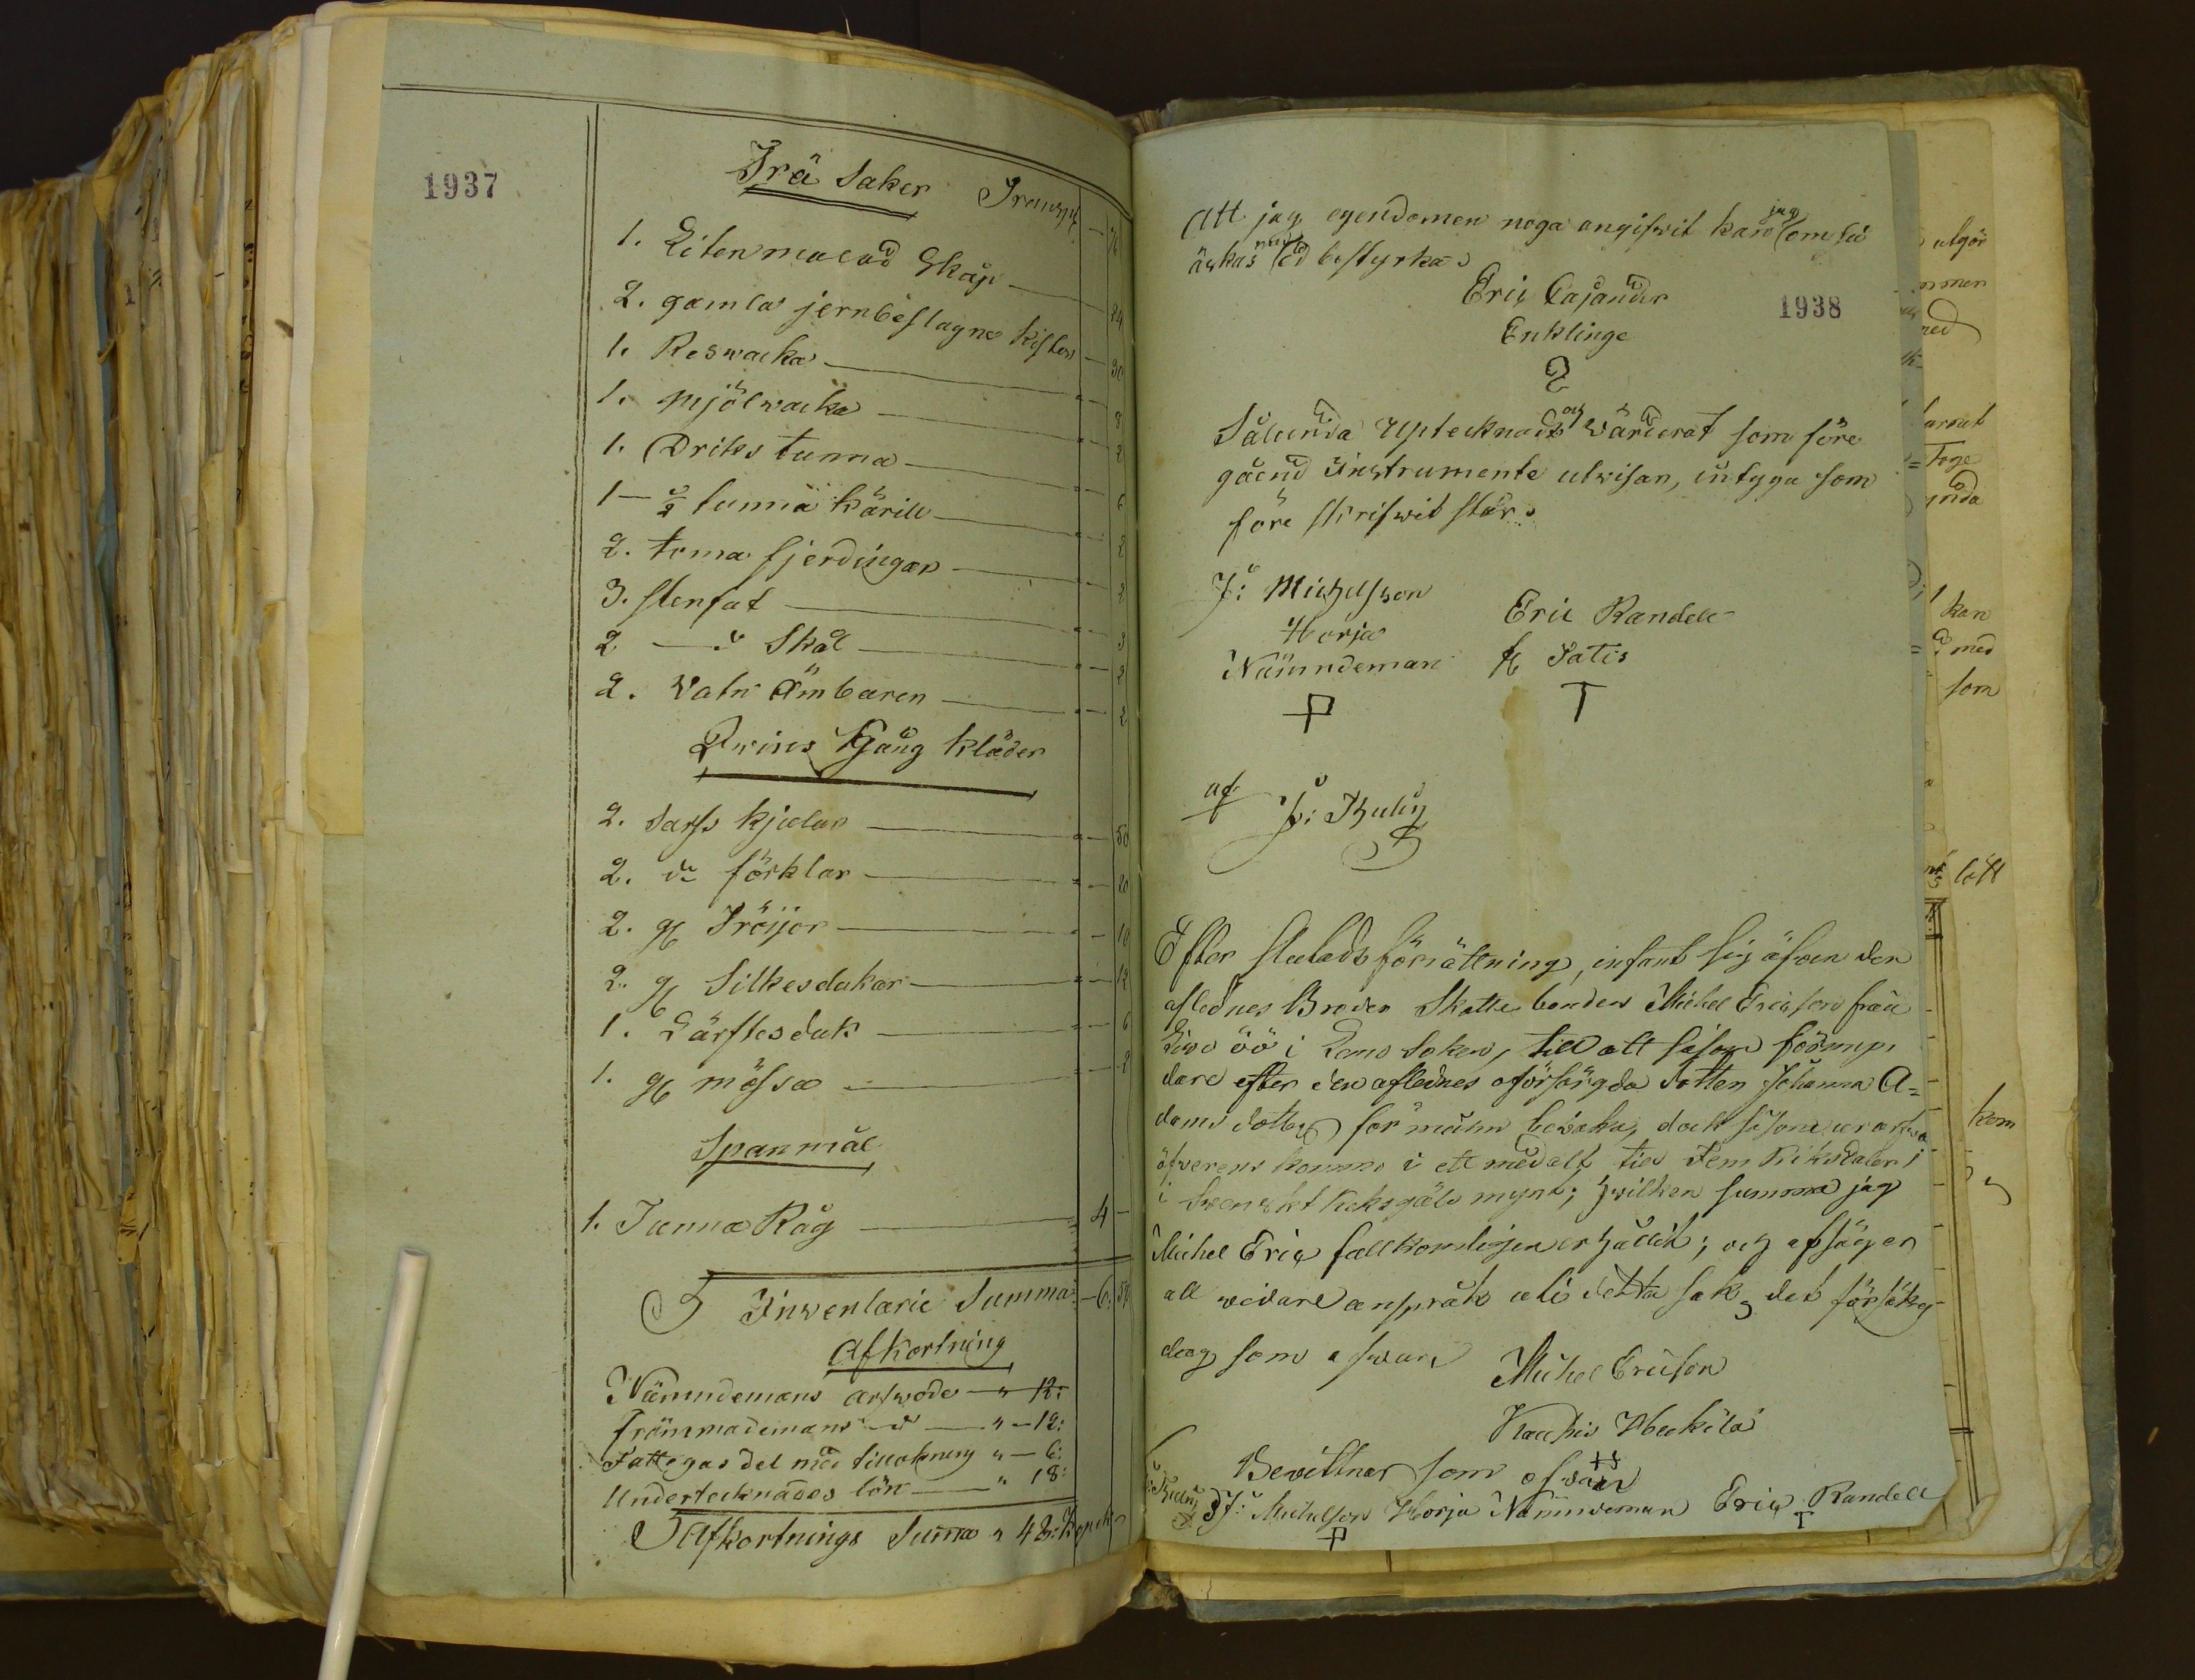 1937
Trä Saker Transp
1. Liten malad Skåp — 24
2. gamla jernbeslagne kistor — 30
1. Reswacka — 8
1. Mjölwacka — 2
1. Driks tunna — 6
1 — ½ tunna kärill — 2
2. toma fjerdingar — 2
3. stenfat — 3
2 — d:o Skål — 2
2. Vatn Ämbaren — 2
Qwins Gång kläder
2. Sarss kjolar — 50
2. d:o förklar — 20
2. gl Tröijor — 10
2. gl Silkesdukar — 12
1. Lärftesduk — 6
1. gl mössa
Spanmål
1. Tunna Råg — 4 —
Inventarie Summa — 6.
Afkortning
Nämndemans arfwode — " 12:
frömmademans d:o — " — 12:
Fattigas del med tillökning " — 6:
Undertecknades lön — " 18:
Afkortnings Summa " 48: Kopek
Att jag egendomen noga angifwit kan jag om så
äskas med ed bestyrka.
Eric Cajander
Enklinge
1938
Sålunda Uptecknadt och Värderat som före
gåend Instrumente utwisar, intyga som
före skrifwit står.
J: Michelsson
Horja
Nämndeman
Eric Randell
fr Satis
af
J: Thulin
Efter slutads förrättning, infant sig äfven den
aflednes Broder Skatte bonden Michel Ericson från
öö i Lemo Soken, till att såsom förmyn
dare efter den aflednes oförsörgda dotter Johanna A=
dams dotter förmån bewaka, dock såsom
öfwerens komma i ett med alt till Fem Riksdaler
i Swenskt Riksgäls mynt; hwilken summa jag
Michel Eric fullkomligen erhållit; och afsäger
all widare anspråk uti detta sak, det försäkrar
dag som ofwan
Michel Ericson
Heikilä
Bewittnar som ofwan
J: Michelson Horja Nämndeman Eric Randell